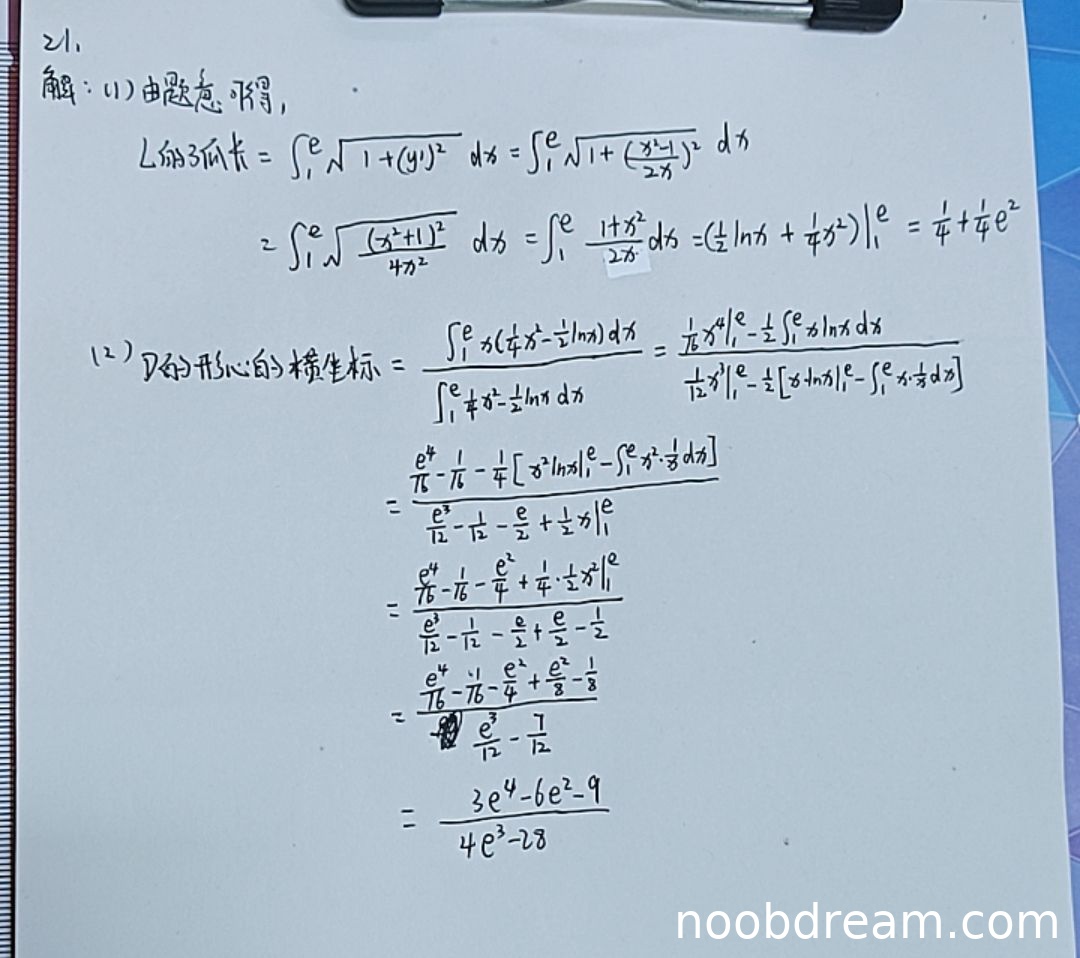 21.
解：(1) 由题意可得，
L的弧长 = ∫₁ᵉ √(1+(y')²) dx = ∫₁ᵉ √(1+((x²-1)/2x)²) dx
= ∫₁ᵉ √((x²+1)²/4x²) dx = ∫₁ᵉ (1+x²)/2x dx = (½ lnx + ¼x²)|₁ᵉ = ¼ + ¼e²
(2) D的形心的横坐标 = [∫₁ᵉ x(¼x² - ½lnx) dx] / [∫₁ᵉ ¼x² - ½lnx dx] = [1/16 x⁴|₁ᵉ - ½∫₁ᵉ xlnx dx] / [1/12 x³|₁ᵉ - ½[x·lnx|₁ᵉ - ∫₁ᵉ x·1/x dx]]
= [e⁴/16 - 1/16 - ¼[x²lnx|₁ᵉ - ∫₁ᵉ x²·1/x dx]] / [e³/12 - 1/12 - e/2 + ½x|₁ᵉ]
= [e⁴/16 - 1/16 - e²/4 + ¼·½x²|₁ᵉ] / [e³/12 - 1/12 - e/2 + e/2 - 1/2]
= [e⁴/16 - 1/16 - e²/4 + e²/8 - 1/8] / [e³/12 - 7/12]
= (3e⁴-6e²-9) / (4e³-28)
noobdream.com